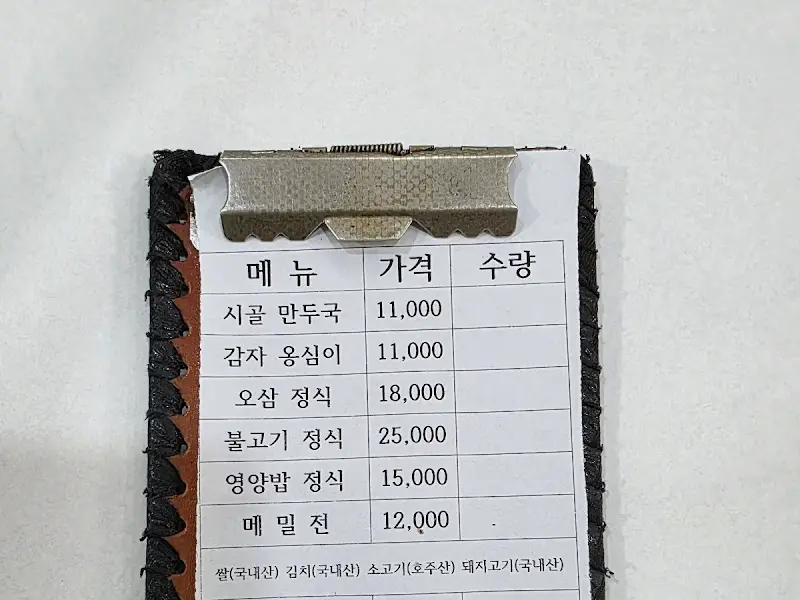 메 뉴 가격 수량
시골 만두국 11,000
감자 옹심이 11,000
오삼 정식 18,000
불고기 정식 25,000
영양밥 정식 15,000
메 밀 전 12,000
쌀(국내산) 김치(국내산) 소고기(호주산) 돼지고기(국내산)